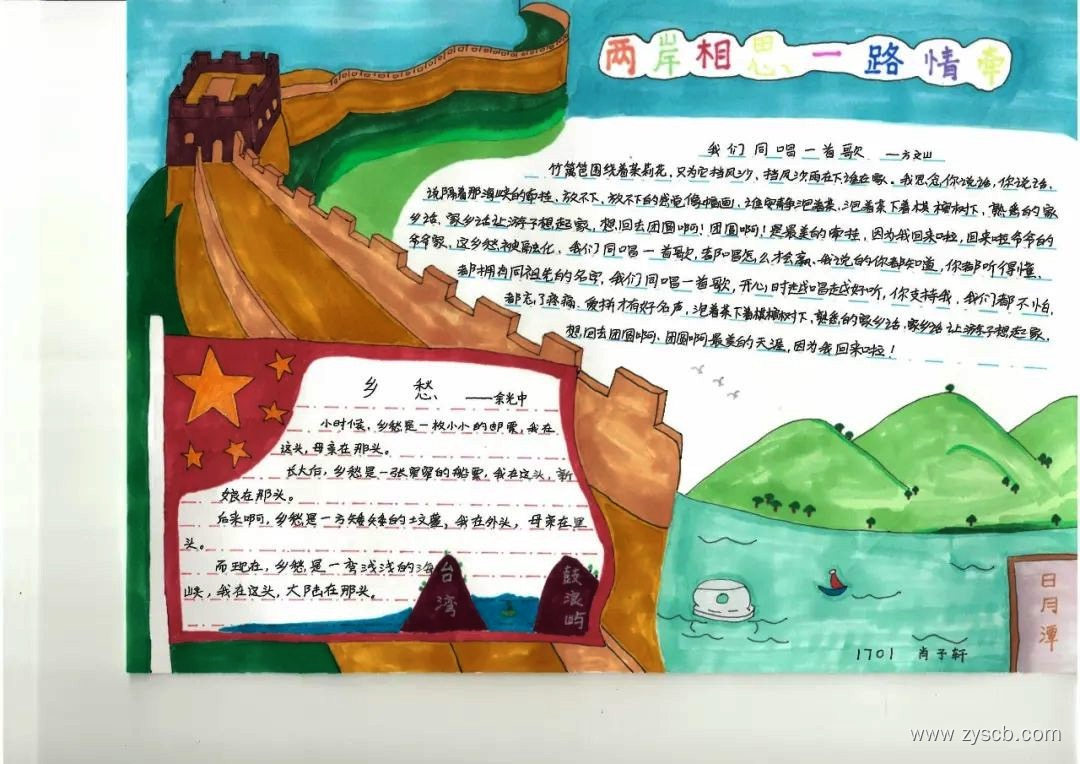 两岸相思一路情牵
我们同唱一首歌 ——方文山
竹篱笆围绕着茉莉花,只为它挡风沙,挡风沙雨在下谁在家。我思念你说话,你说话,
说隔着那海峡的牵挂,放不下,放不下的感觉像幅画,谁安静泡着茶,泡着茶下着棋榕树下,熟悉的家
乡话,家乡话让游子想起家,想回去团圆啊!团圆啊!是最美的牵挂,因为我回来啦,回来啦爷爷的
爷爷家,这乡愁被融化,我们同唱一首歌,都唱怎么才会赢、我说的你都知道,你都听得懂、
都拥有同祖先的名字,我们同唱一首歌,开心时越唱越好听,你支持我,我们都不怕,
都忘了疼痛、爱拼才有好名声,泡着茶下着棋榕树下,熟悉的家乡话,家乡话让游子想起家,
想回去团圆啊、团圆啊最美的天涯,因为我回来啦!
乡愁
——余光中
小时候,乡愁是一枚小小的邮票,我在
这头,母亲在那头。
长大后,乡愁是一张窄窄的船票,我在这头,新
娘在那头。
后来啊,乡愁是一方矮矮的坟墓,我在外头,母亲在里
头。
而现在,乡愁是一弯浅浅的海
峡,我在这头,大陆在那头。
台湾
鼓浪屿
日月潭
1701 肖子轩
www.zyscb.com